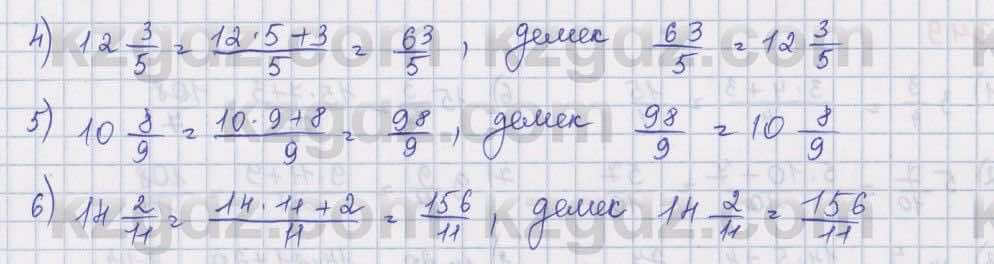 4) 12 3/5 = (12·5+3)/5 = 63/5, демек 63/5 = 12 3/5
5) 10 8/9 = (10·9+8)/9 = 98/9, демек 98/9 = 10 8/9
6) 14 2/11 = (14·11+2)/11 = 156/11, демек 14 2/11 = 156/11
kzgdz.com